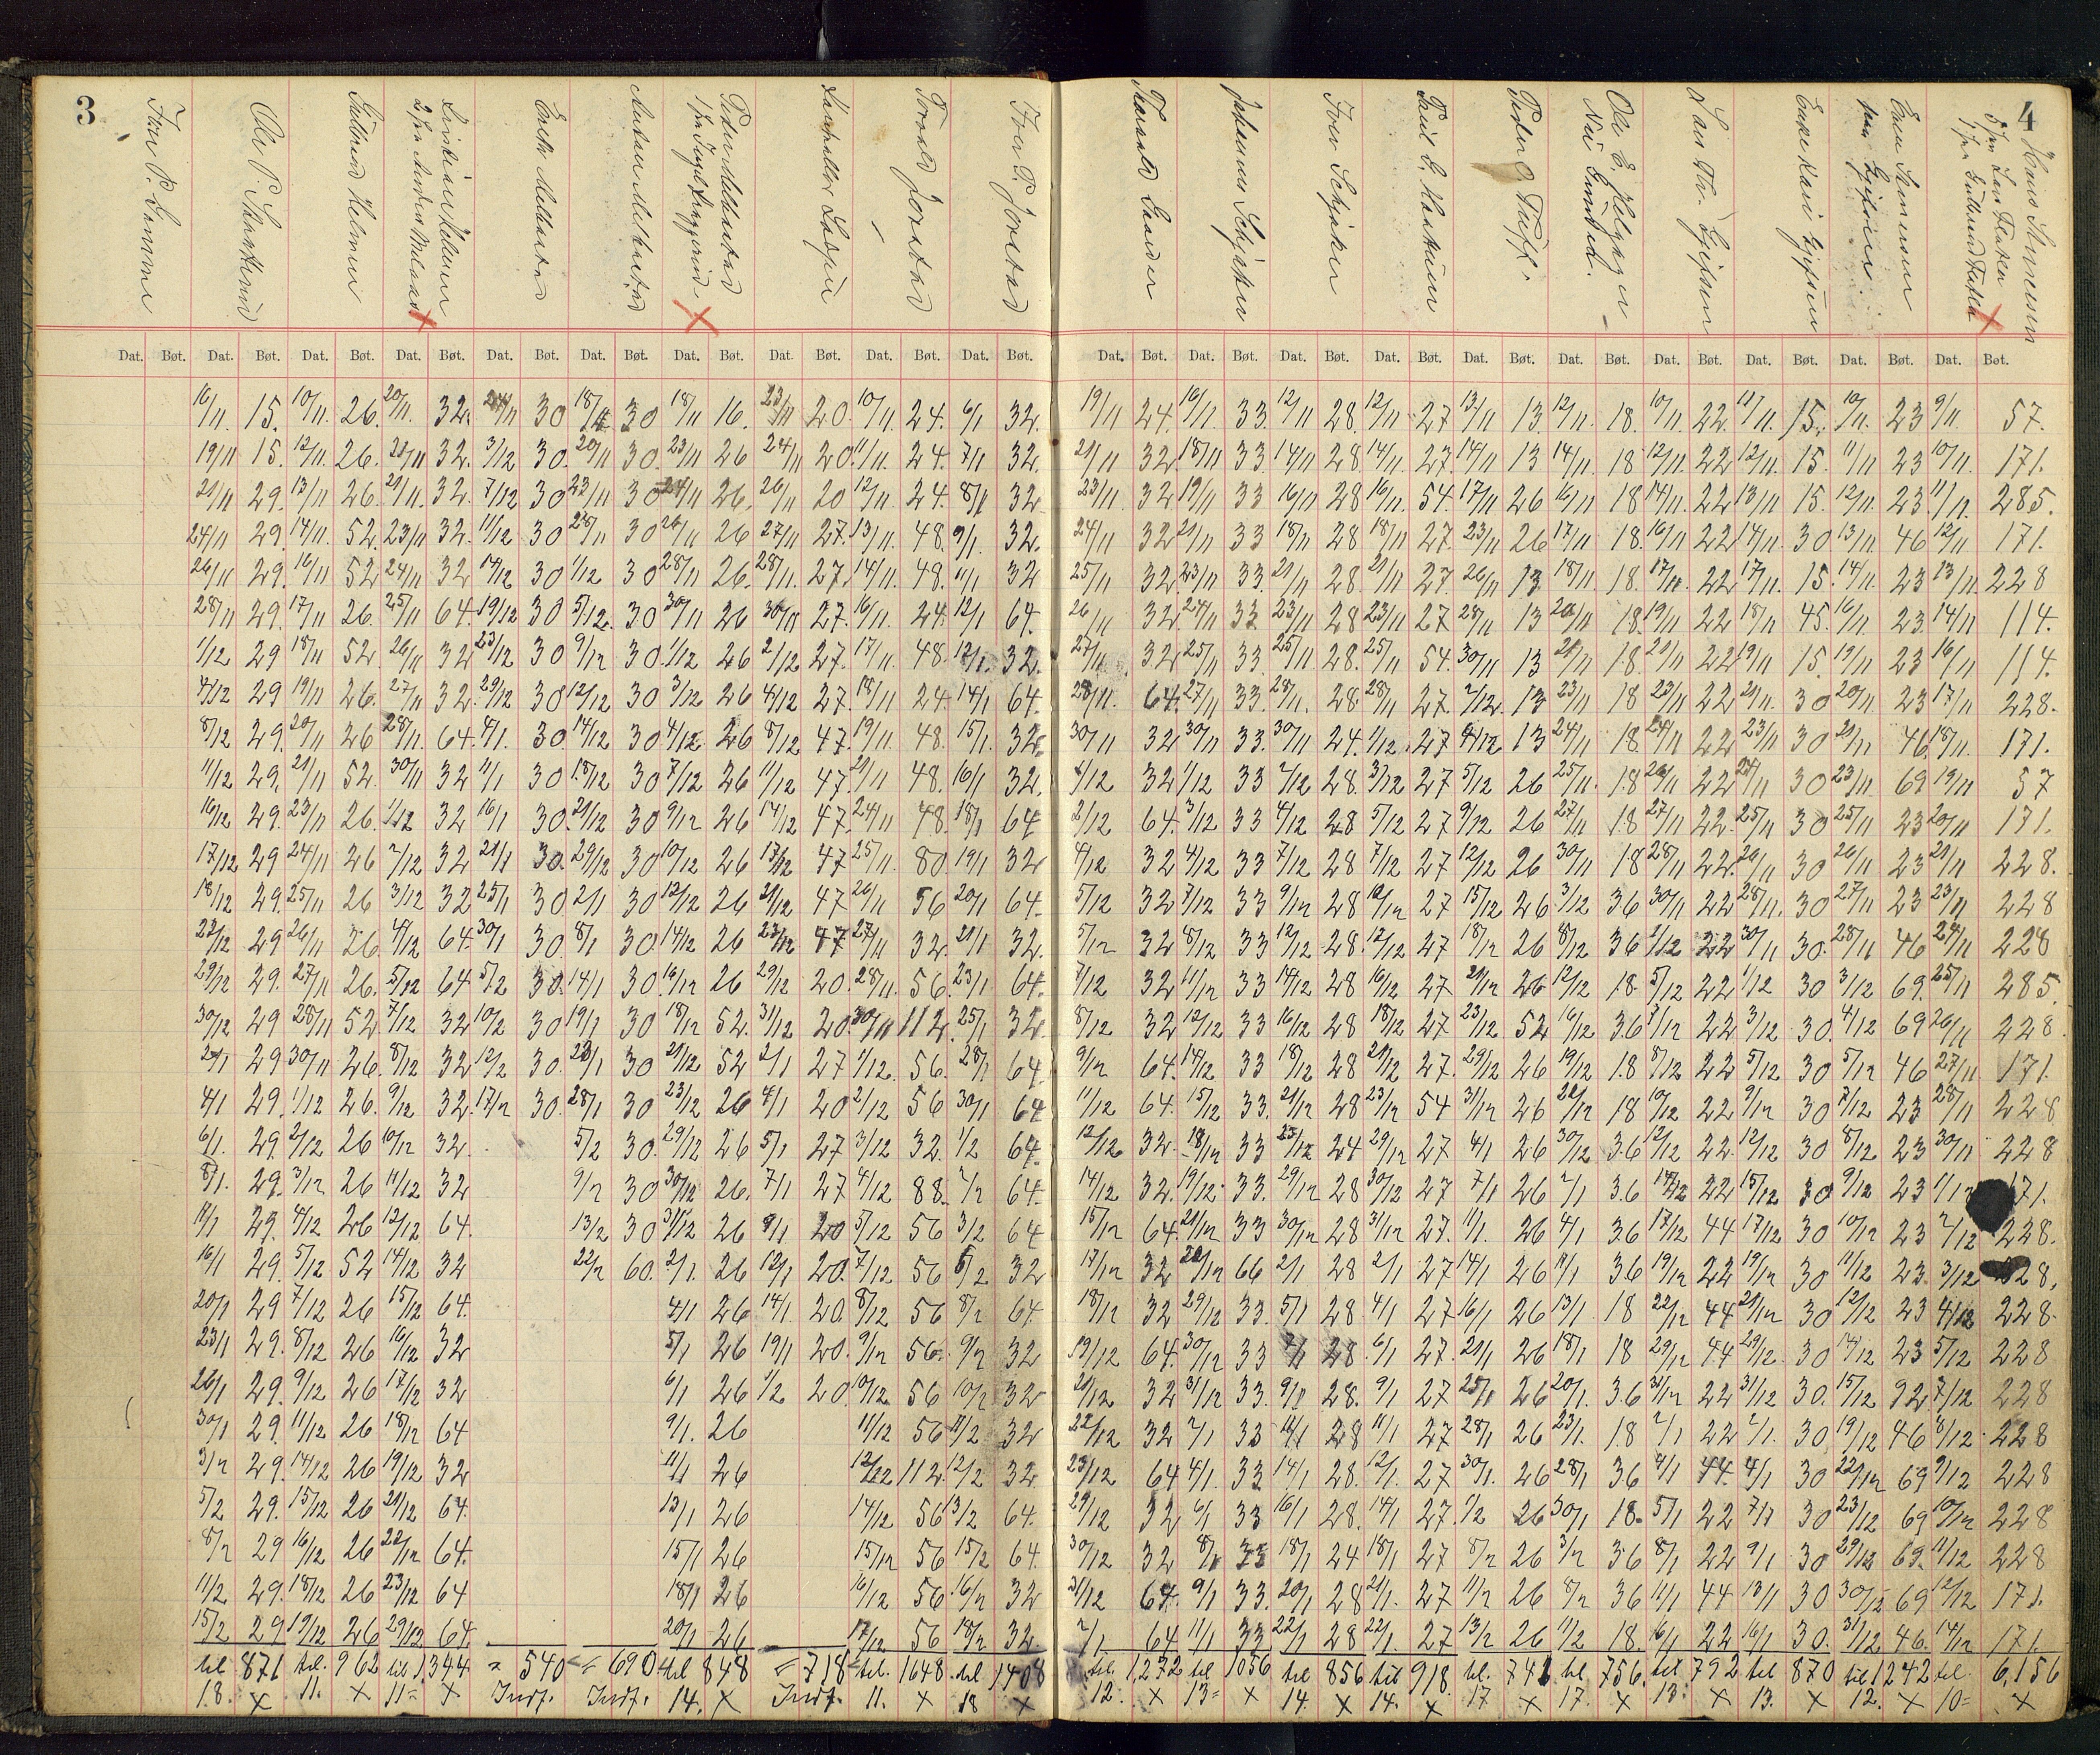 3
4
Iver P. Lomme
Ole P. Skratterud
Gulbrand Helmen
Mellastad
Anton Mellastad
Peder Mellastad
Torvald Jorstad
Iver P. Jorstad
Johannes Schjaker
Iver Schjaker
Peder O.
Ole E.
Hans Stenersen
Dat. Bøt. Dat. Bøt. Dat. Bøt. Dat. Bøt. Dat. Bøt. Dat. Bøt. Dat. Bøt. Dat. Bøt. Dat. Bøt. Dat. Bøt.
Dat. Bøt. Dat. Bøt. Dat. Bøt. Dat. Bøt. Dat. Bøt. Dat. Bøt. Dat. Bøt. Dat. Bøt. Dat. Bøt. Dat. Bøt.
16/11. 15. 10/11. 26. 20/11. 32. 24/11 30 18/11 30 18/11 16. 23/11 20. 10/11. 24. 6/1 32.
19/11 24. 16/11. 33. 12/11 28. 12/11. 27 13/11 13. 12/11. 18. 10/11. 22. 11/11. 15. 10/11. 23 9/11. 57.
19/11 15. 12/11. 26. 21/11 32. 3/12 30. 20/11 30. 23/11 26 24/11 20. 11/11. 24. 7/1 32.
21/11 32. 18/11 33. 14/11 28. 14/11. 27. 14/11 13 14/11. 18 12/11. 22 12/11. 15. 11/11 23 10/11. 171.
21/11 29. 13/11 26. 21/11. 32. 7/12 30 23/11 30 24/11 26. 26/11 20 12/11 24. 8/1 32
23/11. 32 19/11 33 16/11 28 16/11. 54. 17/11 26 16/11 18 14/11. 22 13/11 15. 12/11. 23. 11/11. 285.
24/11 29. 14/11. 52. 23/11 32. 11/12 30 28/11 30 26/11 26 27/11 27. 13/11. 48. 9/1. 32.
24/11 32 21/11 33 18/11 28 18/11 27. 23/11 26 17/11 18. 16/11 22 14/11. 30 13/11. 46 12/11 171.
26/11 29. 16/11 52 24/11 32 14/12 30 1/12 30 28/11 26. 28/11. 27. 14/11. 48. 11/1 32
25/11 32 23/11 33. 21/11 28. 21/11 27. 26/11 13. 18/11. 18. 17/11. 22. 17/11. 15. 14/11. 23 13/11. 228
28/11 29. 17/11 26. 25/11 64. 19/12 30 5/12. 30 30/11 26 30/11 27. 16/11. 24. 12/1 64.
26/11 32. 24/11 33 23/11 28 23/11 27 28/11 13 20/11 18. 19/11 22 18/11 45. 16/11. 23. 14/11 114.
1/12 29 18/11 52. 26/11 32 23/12 30 9/12 30. 1/12 26 2/12 27. 17/11. 48. 12/1. 32.
27/11 32 25/11 33. 25/11 28. 25/11 54. 30/11 13 21/11 18. 21/11 22 19/11 15. 19/11 23 16/11 114.
4/12 29 19/11 26. 27/11 32. 29/12 30 12/12 30 3/12 26 4/12 27. 18/11 24. 14/1 64.
28/11. 64. 27/11 33. 28/11. 28. 28/11 27. 2/12. 13 23/11 18 23/11 22 21/11. 30 20/11 23 17/11 228.
8/12 29. 20/11 26 28/11. 64. 4/1. 30 14/12 30 4/12 26 8/12 47. 19/11. 48. 15/1. 32.
30/11 32 30/11 33. 30/11 24. 1/12. 27 4/12 13 24/11 18 24/11 22 23/11 30 21/11 46. 18/11. 171.
11/12 29. 21/11 52. 30/11 32 11/1 30 18/12 30 7/12 26 11/12 47. 21/11 48. 16/1 32.
1/12 32 1/12 33 2/12 28. 3/12 27 5/12 26 25/11. 18 26/11 22 24/11 30 23/11. 69 19/11 57
16/12 29. 23/11 26. 1/12 32 16/1 30. 21/12 30 9/12 26 14/12 47. 24/11 48. 18/1 64
2/12 64. 3/12 33 4/12 28 5/12 27 9/12 26 27/11 18 27/11 22. 25/11 30 25/11 23 20/11 171.
17/12 29 24/11 26 2/12 32 21/1 30. 29/12 30 10/12 26 17/12 47 25/11. 80 19/1 32
4/12 32 4/12 33 7/12 28 7/12 27 12/12 26 30/11 18 28/11 22. 26/11 30 26/11 23 21/11 228.
18/12 29. 25/11 26 3/12 32 25/1 30 2/1 30 12/12 26 21/12 47 26/11 56 20/1 64.
5/12 32 7/12 33 9/12 28 10/12 27 15/12 26. 3/12 36 30/11 22 28/11. 30 27/11 23 23/11 228
23/12 29 26/11 26. 4/12 64. 30/1 30. 8/1 30. 14/12 26 23/12 47 27/11 32. 21/1 32.
5/12 32 8/12 33 12/12 28. 12/12 27 18/12 26 8/12 36 1/12 22 30/11 30. 28/11 46 24/11 228
29/12 29. 27/11 26. 5/12 64 5/2 30. 14/1 30. 16/12 26 29/12 20. 28/11. 56. 23/1 64.
7/12 32 11/12 33 14/12 28 16/12 27 21/12 26 12/12 18. 5/12 22 1/12 30 3/12 69. 25/11 285.
30/12 29 28/11 52. 7/12 32 10/2 30 19/1 30 18/12 52. 31/12 20. 30/11 112. 25/1 32.
8/12 32 12/12 33 16/12 28 18/12 27 23/12 52 16/12 36 7/12 22 3/12 30. 4/12 69 26/11 228.
2/1 29 30/11 26. 8/12 32 12/2 30. 23/1 30 21/12 52 2/1 27 1/12. 56. 28/1 64.
9/12 64. 14/12 33 18/12 28 21/12 27. 29/12 26 19/12 18 8/12 22 5/12 30 5/12 46 27/11. 171.
4/1 29. 1/12 26. 9/12 32. 17/2 30. 28/1 30 23/12 26 4/1 20 2/12 56 30/1 64
11/12 64. 15/12 33. 21/12 28 23/12 54 31/12 26 22/12 18 10/12 22 9/12 30 7/12 23 28/11 228
6/1. 29. 2/12 26 10/12 32. 5/2 30. 29/12 26 5/1 27 3/12 32. 1/2 64.
12/12 32. 18/12 33 23/12 24 29/12 27 4/1 26 30/12 36 12/12 22. 12/12 30 8/12 23 30/11 228
8/1. 29. 3/12 26 11/12 32 9/2 30 30/12 26. 7/1 27 4/12 88. 2/2 64.
14/12 32. 19/12. 33. 29/12 28 30/12 27 7/1 26 2/1 36 14/12 22 15/12 30 9/12 23 1/12 171.
14/1 29. 4/12 26 12/12 64. 13/2 30 31/12 26 9/1 20 5/12 56 3/2 64
15/12 64. 21/12 33 30/12 28 31/12 27. 11/1. 26 4/1 36 17/12 44 17/12 30 10/12 23 2/12 228.
16/1 29. 5/12 52 14/12 32 22/2 60. 2/1. 26 12/1 20. 7/12 56 6/2 32
17/12 32 22/12 66 2/1 28 2/1 27 14/1 26 11/1 36 19/12 22 19/12 30 11/12 23. 3/12 228.
20/1 29 7/12 26 15/12 64. 4/1 26 14/1. 20. 8/12 56 8/2 64.
18/12 32 29/12 33. 5/1 28. 4/1 27 16/1 26 13/1 18 22/12 44 21/12 30 12/12 23 4/12 228.
23/1 29. 8/12 26 16/12 32 5/1 26 19/1 20. 9/12 56. 9/2 32
19/12 64. 30/12 33 7/1 28. 6/1 27. 21/1 26 18/1 18 29/12 44 29/12. 30 14/12 23 5/12 228
26/1 29. 9/12 26 17/12 32 6/1 26 1/2 20 10/12 56 10/2 32
21/12 32 31/12 33. 9/1 28. 9/1 27 25/1 26 20/1. 36 31/12 22 31/12 30. 15/12 92 7/12 228
30/1 29. 11/12 26 18/12 64 9/1. 26 11/12 56 11/2 32
22/12 32 2/1 33 11/1 28 11/1 27 28/1 26 23/1. 18 2/1 22 2/1. 30 19/12 46 8/12. 228
3/2 29. 14/12 26 19/12 32 11/1 26 12/12 112. 12/2 32.
23/12 64 4/1. 33 14/1 28. 12/1. 27 30/1. 26 28/1 36 4/1 44. 4/1 30 22/12 69 9/12 228
5/2 29. 15/12 26 21/12 64. 13/1 26 14/12 56 13/2 64.
29/12 32 6/1 33 16/1 28. 14/1 27. 1/2 26 30/1 18. 5/1 22 7/1 30 23/12 69 10/12 228
8/2 29 16/12 26 22/12 64. 15/1 26 15/12 56 15/2 64.
30/12 32 8/1 33 18/1 24 18/1 27 8/2 26 3/2 36 8/1 22 9/1 30 29/12 69. 11/12 228
11/2 29. 18/12 26 23/12 64 18/1 26 16/12 56 16/2 32
31/12 64. 9/1 33. 20/1 28 21/1. 27 11/2 26 8/2 36 11/1 44 13/1 30 30/12 69 12/12 171.
15/2 29 19/12 26 29/12 64. 20/1 26 17/12 56 18/2 32.
2/1 64 11/1 33 22/1 28 22/1. 27 13/2 26 11/2 18. 16/1 22 16/1 30. 31/12 46. 14/12 171.
til 871 til. 962 til 1344 = 540 = 690 til 848 = 718 til. 1648. til 1408
til. 1272 til 1056 til 856 til 918. til. 741 til. 756. til 792 til 870 til 1242 til. 6,156
18. x 11. x 11= x Indf. Indf. 14. x Indf. 11. x 18 x
12. x 13= x 14. x 14. x 17 x 17. x 13. x 13. x 12. x 10= x